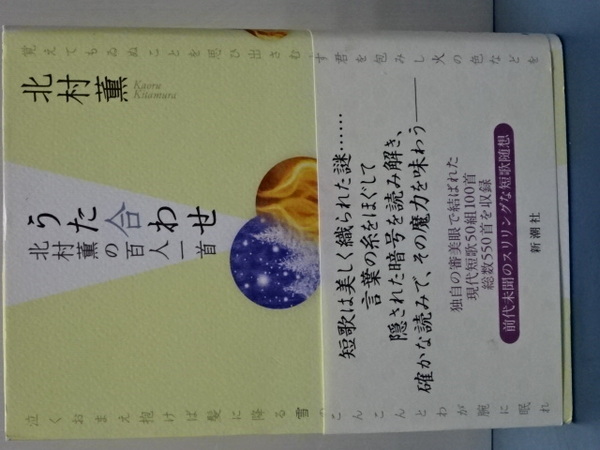 覚えてもゐぬことを思ひ出さむす君を包みし火の色などを
北村薫
Kaoru
Kitamura
うた合わせ
北村薫の百人一首
泣くおまえ抱けば髪に降る雪のこんこんとわが腕に眠れ
短歌は美しく織られた謎……
言葉の糸をほぐして
隠された暗号を読み解き、
確かな読みで、その魔力を味わう――
独自の審美眼で結ばれた
現代短歌50組100首
総数550首を収録
前代未聞のスリリングな短歌随想
新潮社